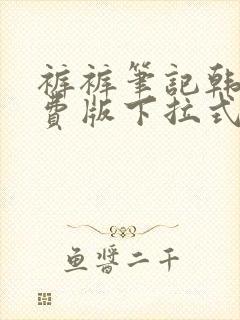 裤裤筆記韩
費版下拉式
鱼醬二千